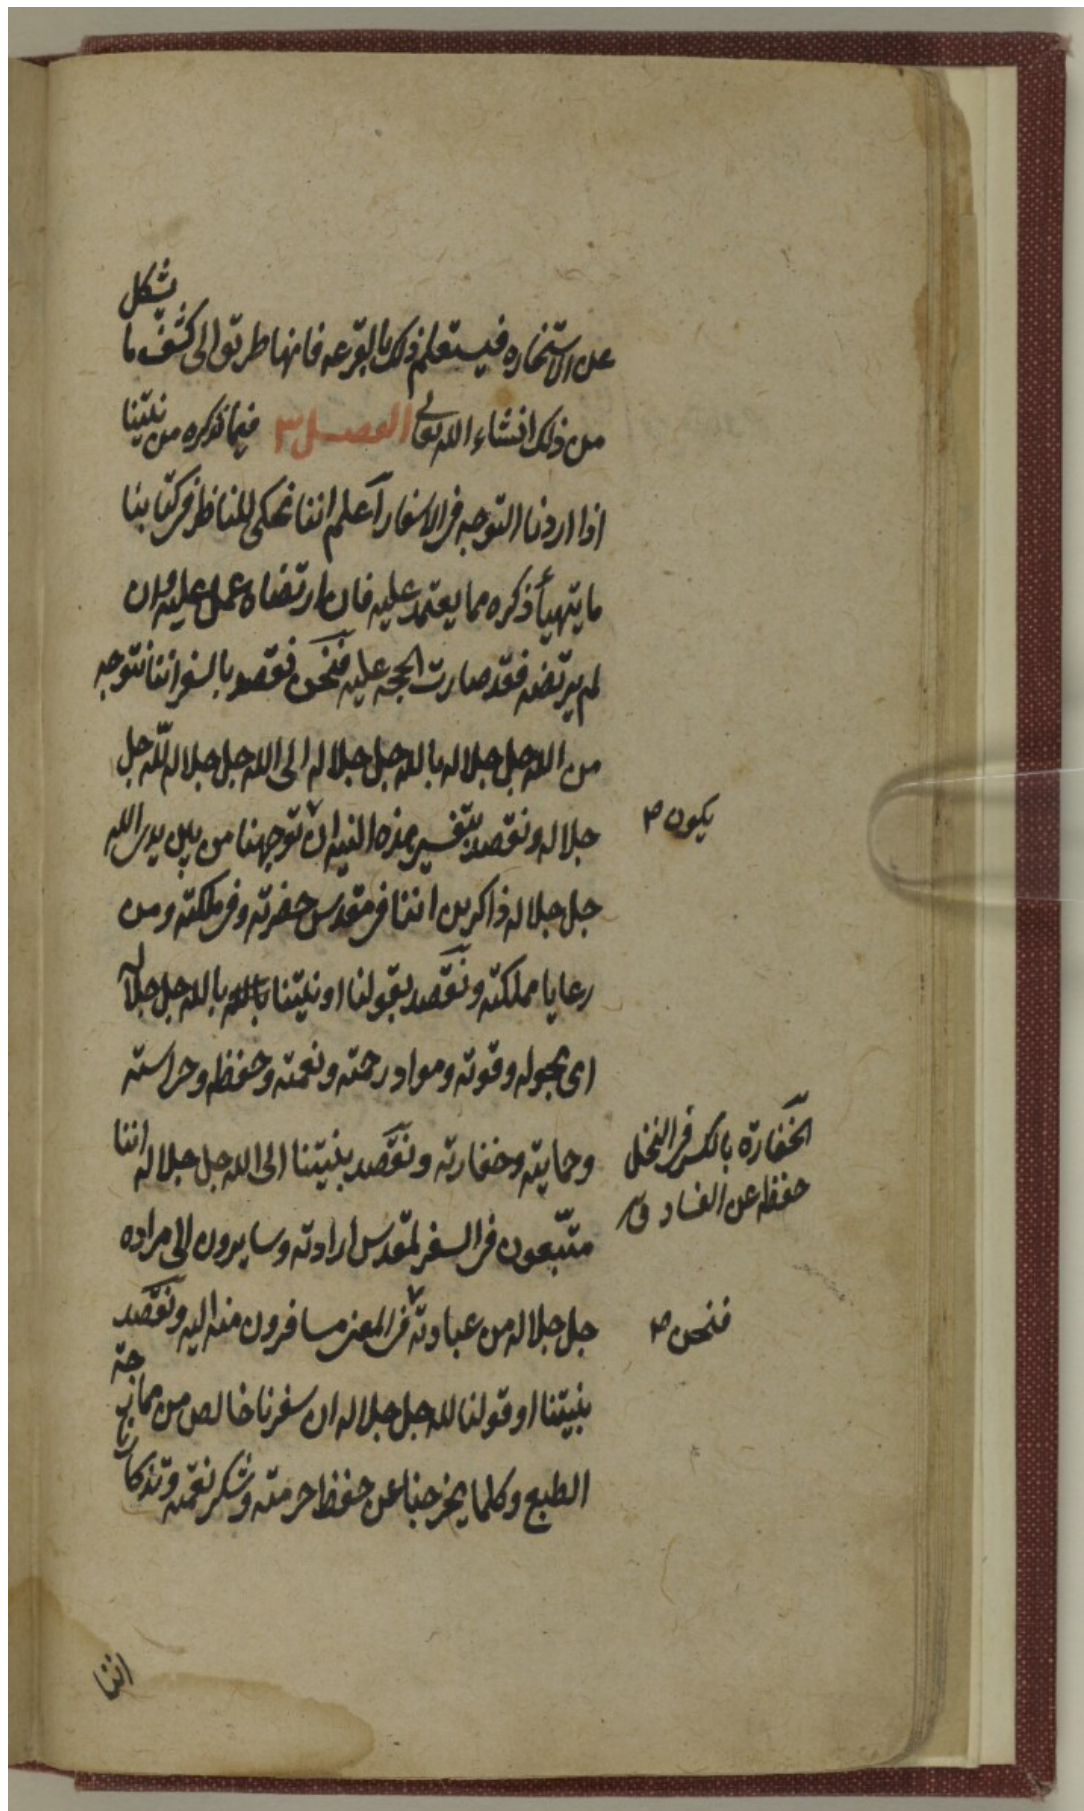 عن الاستخاره فيستعلم ذلك بالقرعه فانها طريق الى كشف ما يشكل
من ذلك انشاء الله تعالى الفصل ٣ فيما نذكره من نيّتنا
اذا اردنا التوجه فى الاسفار اعلم اننا نحكى للناظر فى كتابنا
ما يتهيأ ذكره مما يعتمد عليه فان ارتضاه عمل عليه وان
لم يرتضه فقد صارت الحجه عليه فنحن نقصد بالسفر اننا نتوجه
من الله جل جلاله بالله جل جلاله الى الله جل جلاله لله جل
جلاله ونقصد بتفسير هذه النيه ان توجهنا من بين يدى الله
يكون ص
جل جلاله ذاكرين اننا فى مقدس حضرته وفى ملكته ومن
رعايا مملكته ونقصد بقولنا او نيتنا بالله بالله جل جلاله
اى بحوله وقوته ومواد رحمته ونعمته وحفظه وحراسته
وحمايته وخفارته ونقصد بنيتنا الى الله جل جلاله اننا
الخفارة بالكسر فى النخل
حفظه عن الفساد ق
متّبعون فى السفر لمقدس ارادته وسايرون الى مراده
جل جلاله من عبادته فى المعنى مسافرون منه اليه ونقصد
فنحن ص
بنيتنا او قولنا لله جل جلاله ان سفرنا خالص من ممازجة
الطبع وكلما يخرجنا عن حفظ حرمته وشكر نعمته وتذكار
اننا